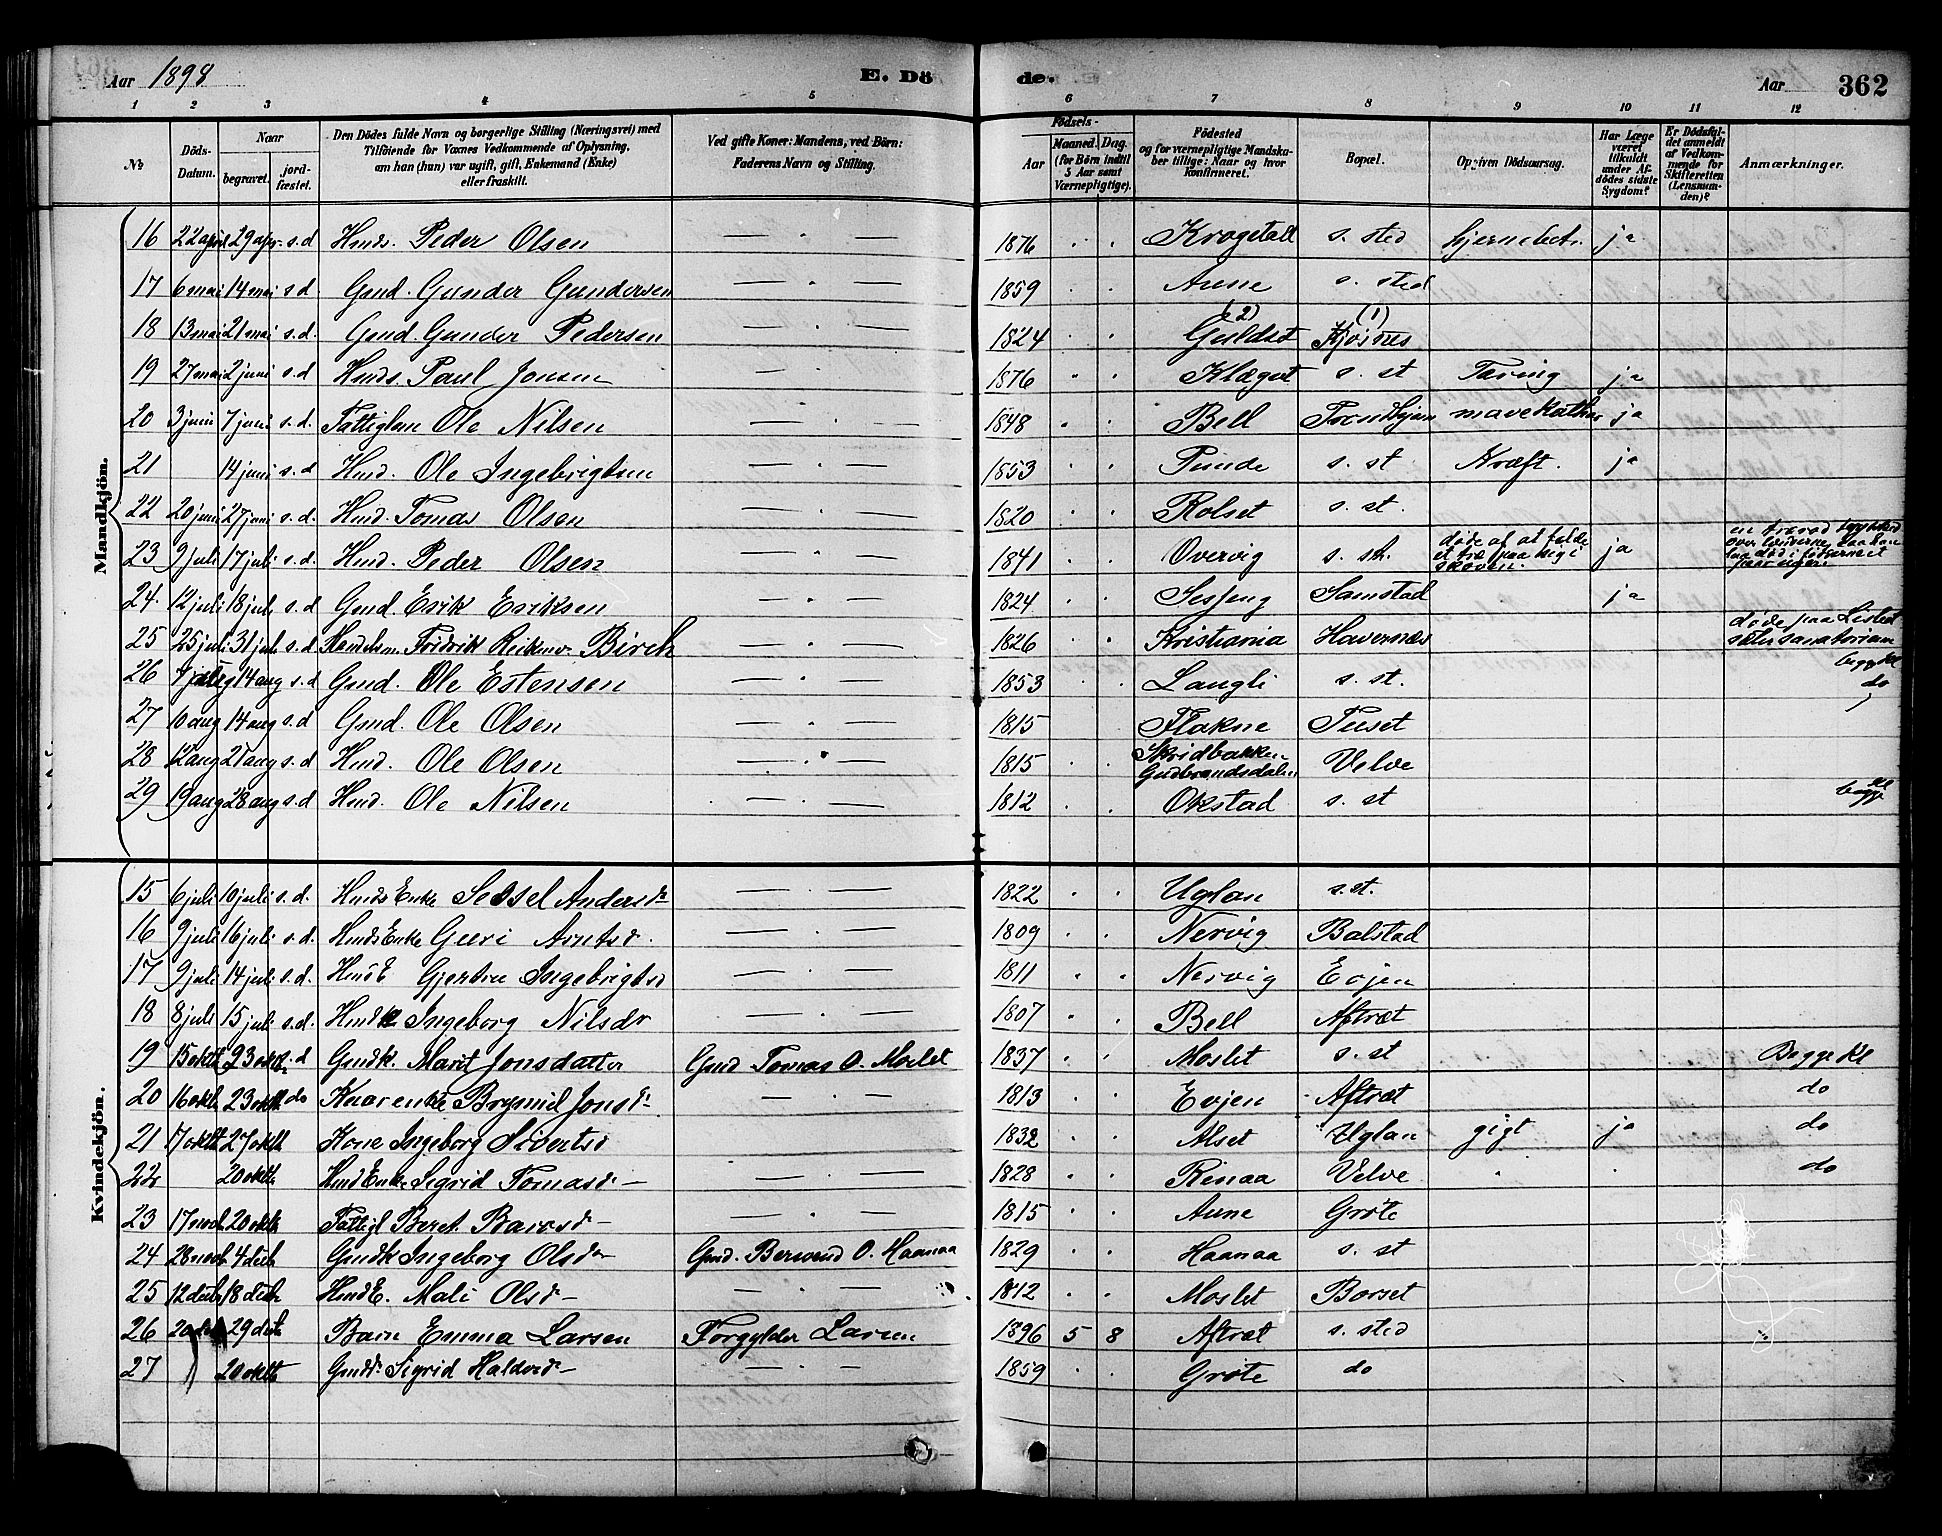 Aar 1898 E. Döde. Aar 362
1 2 3 4 5 6 7 8 9 10 11 12
№ Döds-Datum. Naar begravet. jordfæstet. Den Dödes fulde Navn og borgerlige Stilling (Næringsvei) med Tilföiende for Voxnes Vedkommende af Oplysning, om han (hun) var ugift, gift, Enkemand (Enke) eller fraskilt. Ved gifte Koner: Mandens, ved Börn: Faderens Navn og Stilling. Födsels- Aar Maaned. Dag. (for Börn indtil 5 Aar samt Værnepligtige). Födested og for værnepligtige Mandskaber tillige: Naar og hvor Konfirmeret. Bopæl. Opgiven Dödsaarsag. Har Læge været tilkaldt under Afdödes sidste Sygdom? Er Dödsfaldet anmeldt af Vedkommende for Skifteretten (Lensmanden)? Anmærkninger.
Mandkjön.
16 22 april 29 apr s.d Hmds. Peder Olsen — · — 1876 · · Krogstad s. sted hjernebet. ja
17 6 mai 14 mai s d. Gmd. Gunder Gundersen — · — 1859 · · Aune s. sted
18 13 mai 21 mai s.d. Gmd. Gunder Pedersen — · — 1824 · · (2) Guldset (1) Kjøsnes
19 27 mai 2 juni s.d Hmds. Paul Jonsen — · — 1876 · · Klæget s. st Tæring ja
20 3 juni 7 juni s.d. Fattiglem Ole Nilsen — · — 1848 · · Bell Trondhjem mavekathar ja
21 14 juni s.d Hmd. Ole Ingebrigtsen — · — 1853 · · Tunde s. st Kræft. ja
22 20 juni 27 juni s.d. Hmd. Tomas Olsen — · — 1820 · · Rolset s. st.
23 9 juli 17 juli s.d. Hmd. Peder Olsen — · — 1841 · · Overvig s. st. døde af at fælde et træ paa sig i skoven. ja
24. 12 juli 18 juli s.d Gmd. Erik Eriksen — · — 1824 · · Sesseng Samstad ja
25 25 juli 31 juli s.d Handelsm. Fridrik Birch — · — 1826 · · Kristiania Havernæs døde paa sæter sanatorium
26 14 aug s.d Gmd. Ole Estensen — · — 1853 · · Langli s. st. begge kl do
27 10 aug 14 aug s.d Gmd. Ole Olsen — · — 1815 · · Flakne Tuset
28 12 aug 21 aug s.d Hmd. Ole Olsen — · — 1815 · · Skridbakken Gudbrandsdalen Velve
29 19 aug 28 aug s.d Hmd. Ole Nilsen — · — 1812 · · Okstad s. st begge kl
Kvindekjön.
15 6 juli 10 juli s.d. Hmds Enke Sessel Andersdr — · — 1822 · · Uglan s. st.
16 9 juli 16 juli s.d. Hmds Enke Guri Arntsd. — · — 1809 · · Nervig Balstad
17 9 juli 14 juli s.d. Hmds E Gjertru Ingebrigtsd — · — 1811 · · Nervig Evjen
18 8 juli 15 juli s.d. Ingeborg Nilsdr — · — 1807 · · Bell Aftræt
19 15 oktb 23 oktb s.d Gmdk. Marit Jonsdatter Gmd Tomas O. Moslet 1837 · · Moslet s. st Begge kl
20 16 oktb 23 oktb do Brynnil Jonsd- — · — 1813 · · Evjen Aftræt do
21 17 oktb 27 oktb Kone Ingeborg Sivertsd 1832 · · Alset Uglan gigt ja do
22 20 oktb Hmd Enke Sigrid Tomasd- — · — 1828 · · Renaa Velve · · do
23 17 20 oktb Fattigl Beret Barosd- — · — 1815 · · Aune Grøte
24 28 novb 4 decb Gmdk Ingeborg Olsdr Gmd. O. Haanaa 1829 · · Haanaa s. st
25 12 decb 18 decb Hmd E. Mali Olsd- — · — 1812 · · Moslet Borset
26 20 decb 29 decb Barn Emma Larsen Forgylder Larsen 1896 5 8 Aftræt s. sted
27 20 oktb Gmdd. Sigrid Haldosd- — · — 1859 · · Grøte do